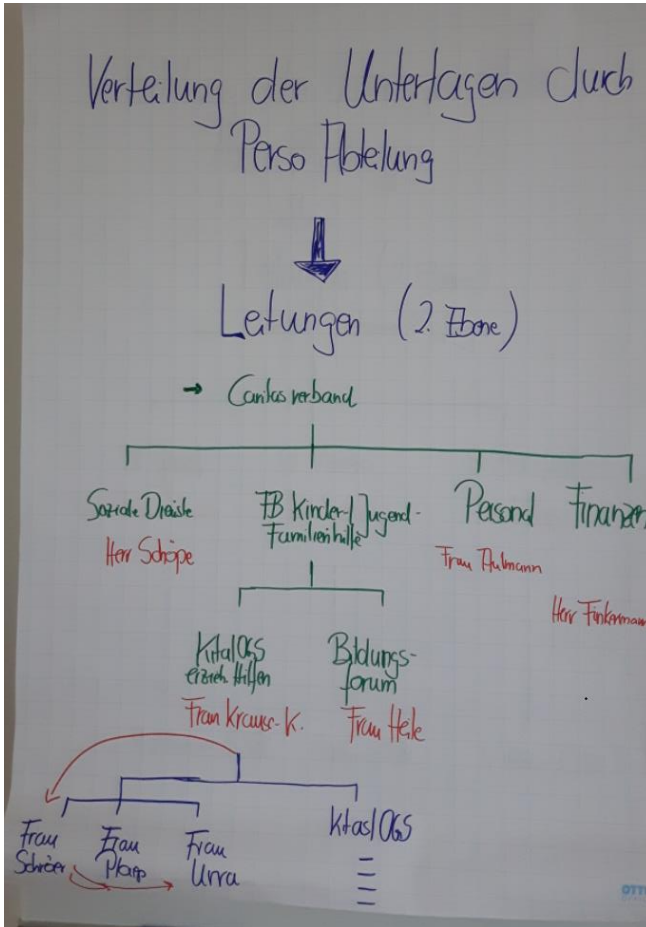 Verteilung der Unterlagen durch
Perso Abteilung
Leitungen (2. Ebene)
→ Caritasverband
Soziale Dienste
Herr Schöpe
FB Kinder-/Jugend-
Familienhilfe
Personal
Frau Aulmann
Finanzen
Herr Finkermann
Kita/OGS
erzieh. Hilfen
Frau Krause-K.
Bildungs-
forum
Frau Heile
Frau
Schröer
Frau
Frau
Urra
Kitas/OGS
OTTO